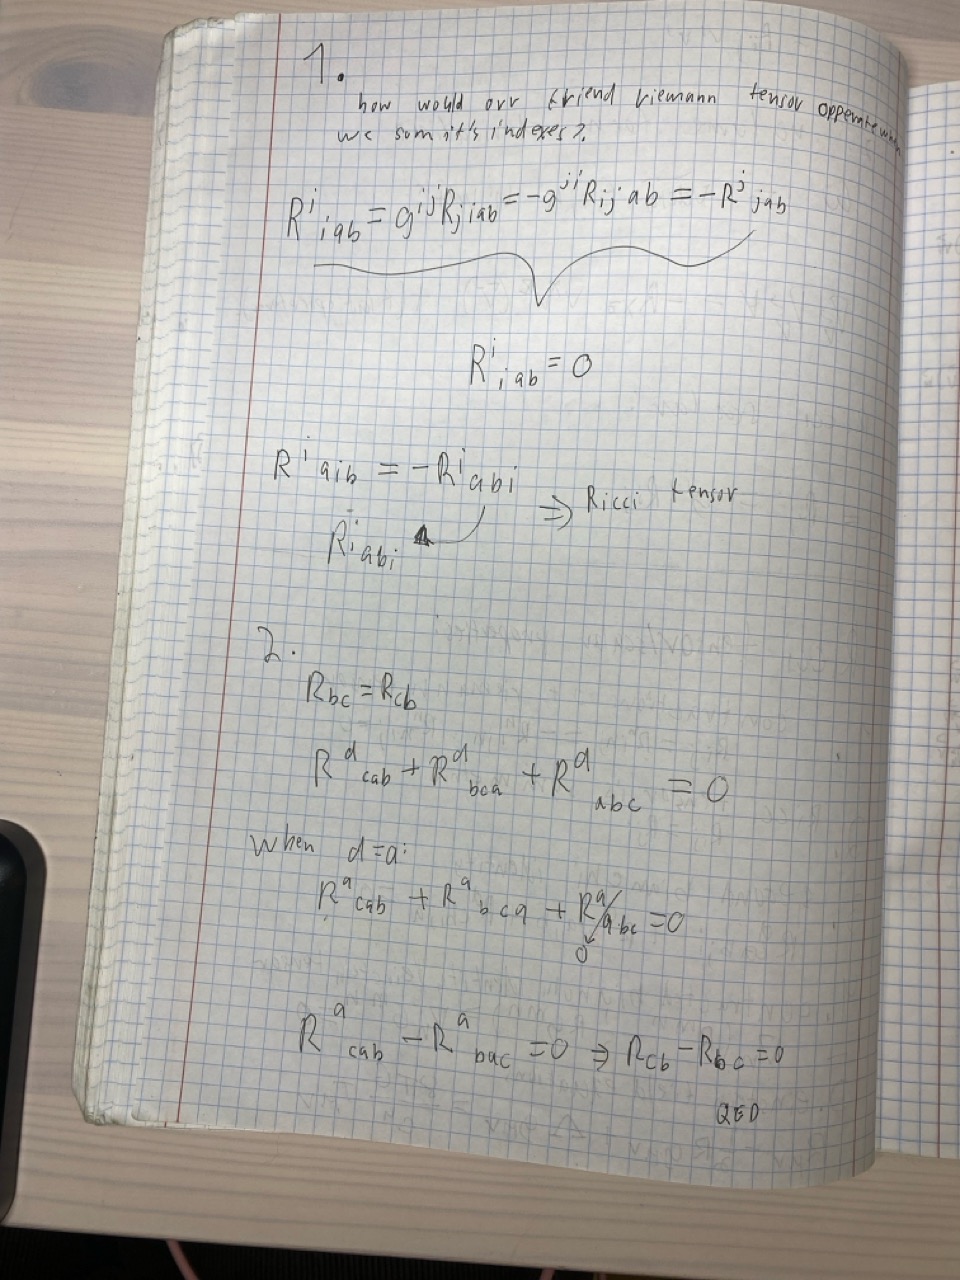 1.
how would our friend riemann tensor opperate when
we sum it's indexes?
R^i_{iab} = g^{ij}R_{jiab} = -g^{ji}R_{ijab} = -R^j_{jab}
R^i_{iab} = 0
R^i_{aib} = -R^i_{abi} ⇒ Ricci tensor
R^i_{abi}
2.
R_{bc} = R_{cb}
R^d_{cab} + R^d_{bca} + R^d_{abc} = 0
When d=a:
R^a_{cab} + R^a_{bca} + R^a_{abc} = 0
0
R^a_{cab} - R^a_{bac} = 0 ⇒ R_{cb} - R_{bc} = 0
QED